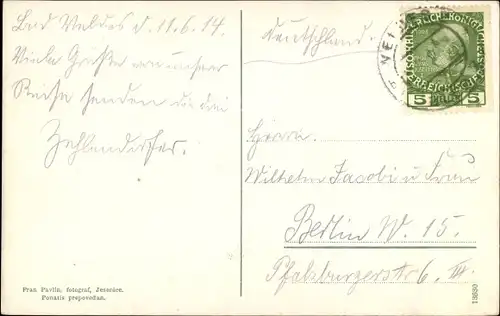 Bad Veldes d. 11.6.14.
Viele Grüße von unserer
Reise senden die drei
Zehlendorfer.
Deutschland.
KAISERLICHE KÖNIGLICHE
ÖSTERREICHISCHE POST
5 Heller 5
Herrn
Wilhelm Jacobi u. Frau
Berlin W. 15.
Pfalzburgerstr 6. III.
Fran Pavlin, fotograf, Jesenice.
Ponatis prepovedan.
13830